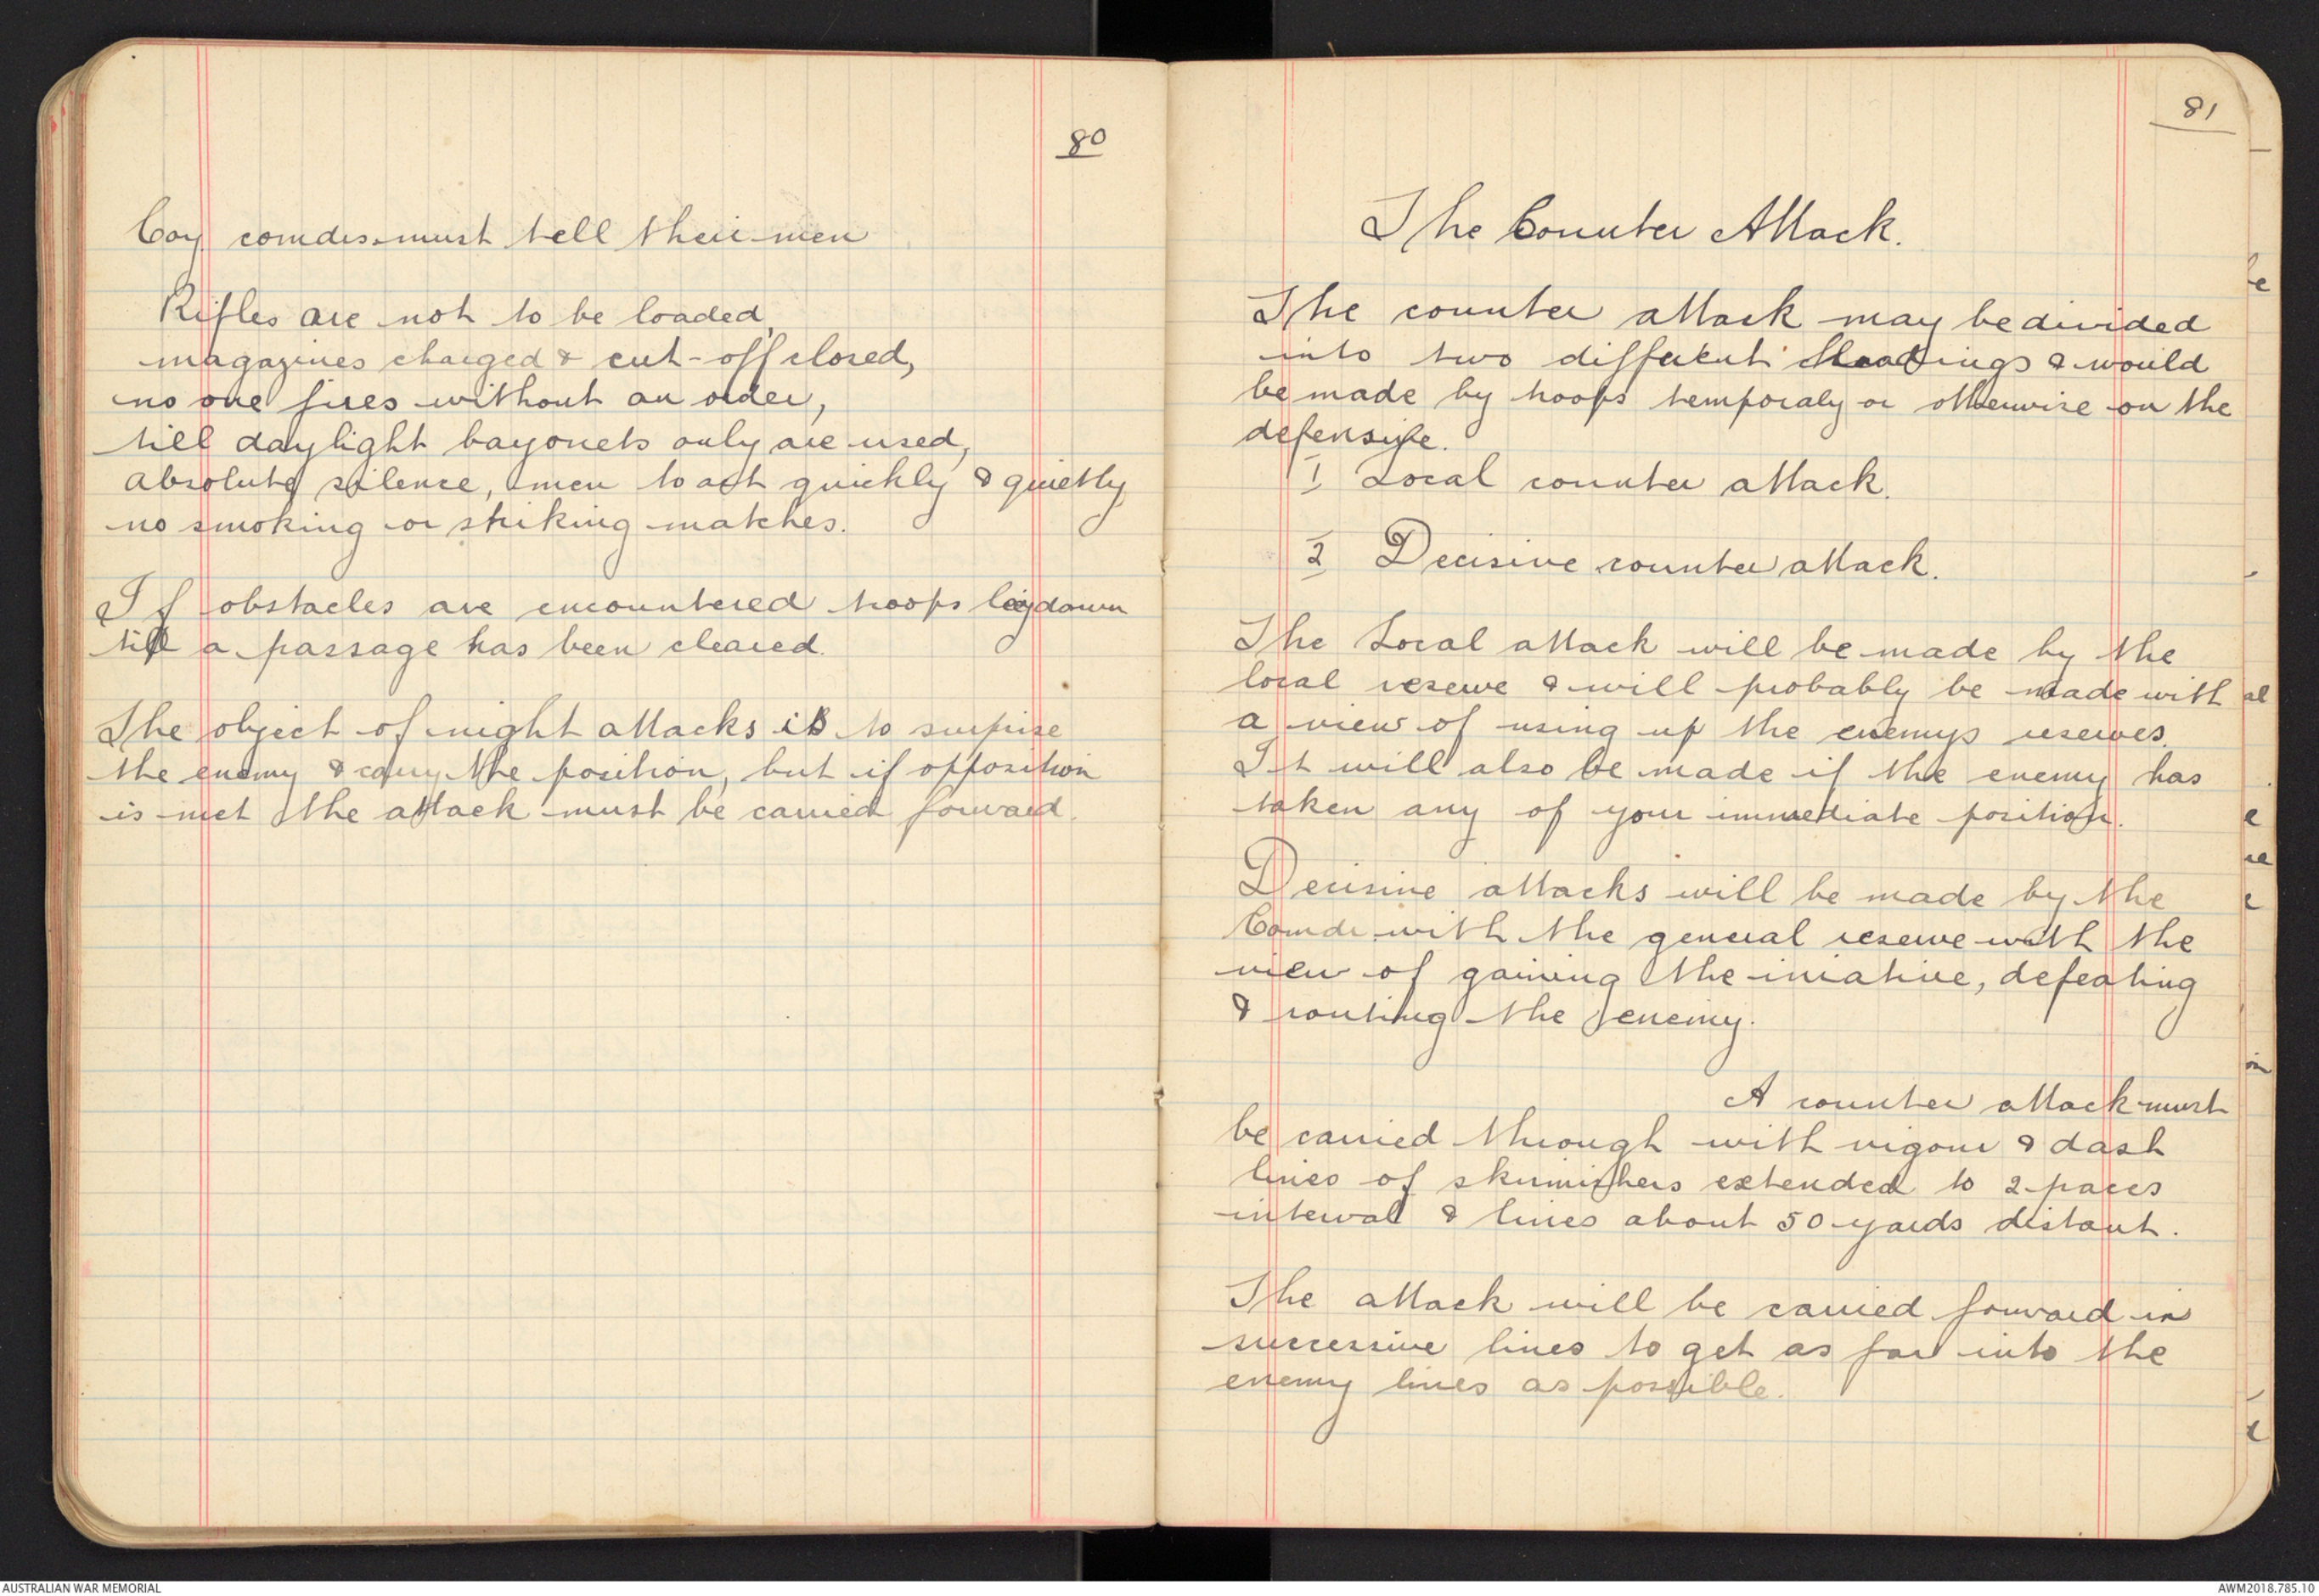 80
Coy. comdrs. must tell their men
Rifles are not to be loaded,
magazines charged & cut-off closed,
no one fires without an order,
till daylight bayonets only are used,
absolute silence, men to act quickly & quietly
no smoking or striking matches.
If obstacles are encountered troops lay down
till a passage has been cleared.
The object of night attacks is to surprise
the enemy & carry the position, but if opposition
is met the attack must be carried forward.
81
The Counter Attack.
The counter attack may be divided
into two different headings & would
be made by troops temporaly or otherwise on the
defensive.
1 Local counter attack.
2 Decisive counter attack.
The Local attack will be made by the
local reserve & will probably be made with
a view of using up the enemys reserves.
It will also be made if the enemy has
taken any of your immediate position.
Decisive attacks will be made by the
Comdr. with the general reserve with the
view of gaining the iniative, defeating
& routing the enemy.
A counter attack must
be carried through with vigour & dash
lines of skirmishers extended to 2 paces
interval & lines about 50 yards distant.
The attack will be carried forward in
successive lines to get as far into the
enemy lines as possible.
AUSTRALIAN WAR MEMORIAL
AWM2018.785.10